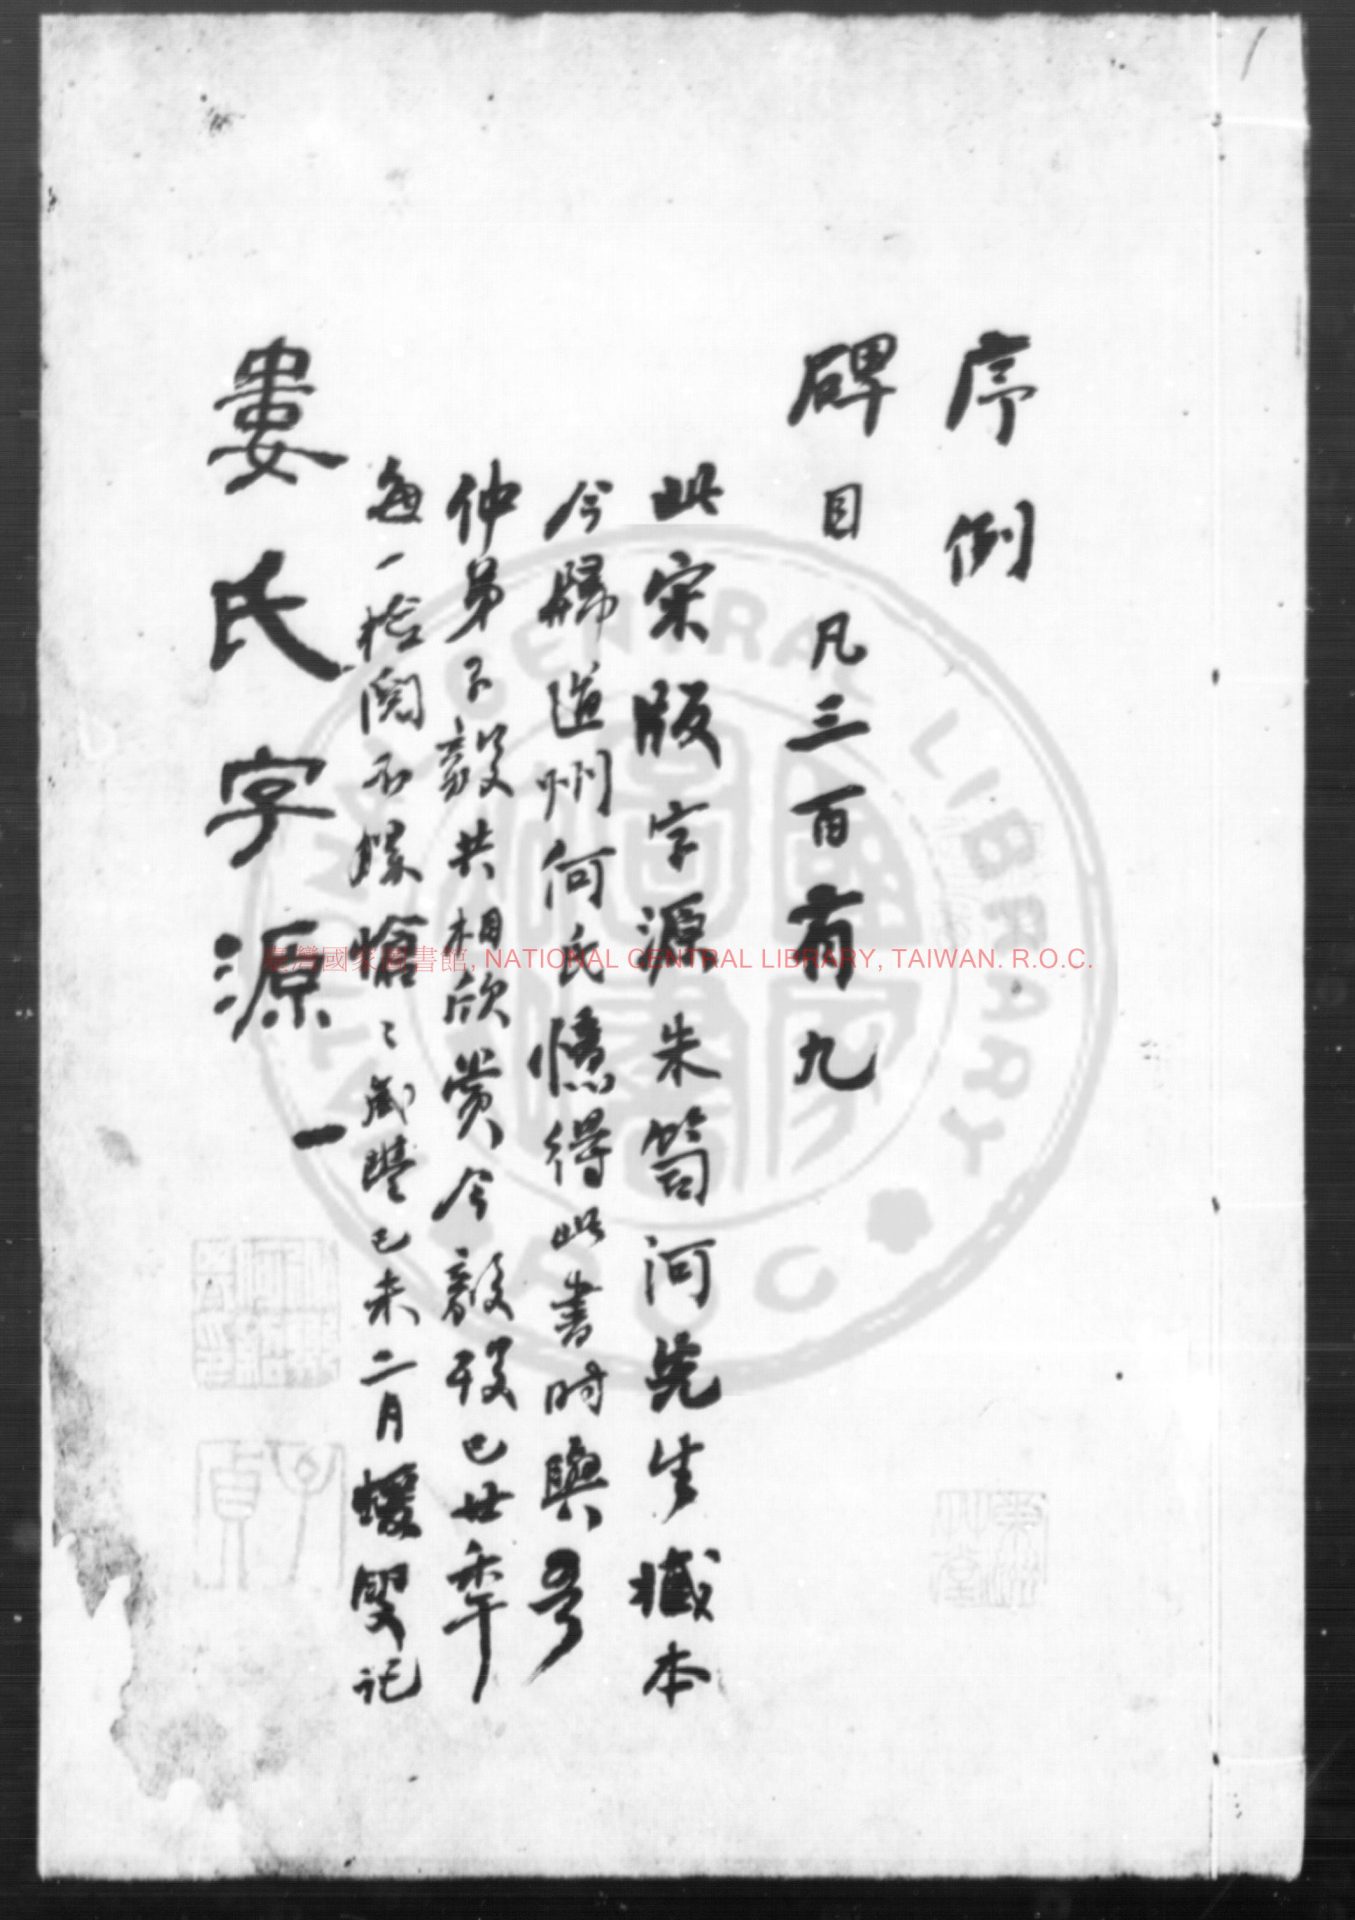 序例
碑目凡三百有九
此宋版字源朱笥河先生臧本
今歸道州何氏憶得此書時與
仲弟子毅共相欣賞今毅歿已廿年
每一檢閱不勝愴〻咸豐己未二月蝯叟記
婁氏字源一
臺灣國家圖書館, NATIONAL CENTRAL LIBRARY, TAIWAN. R.O.C.
NATIONAL CENTRAL LIBRARY R.O.C.
子貞